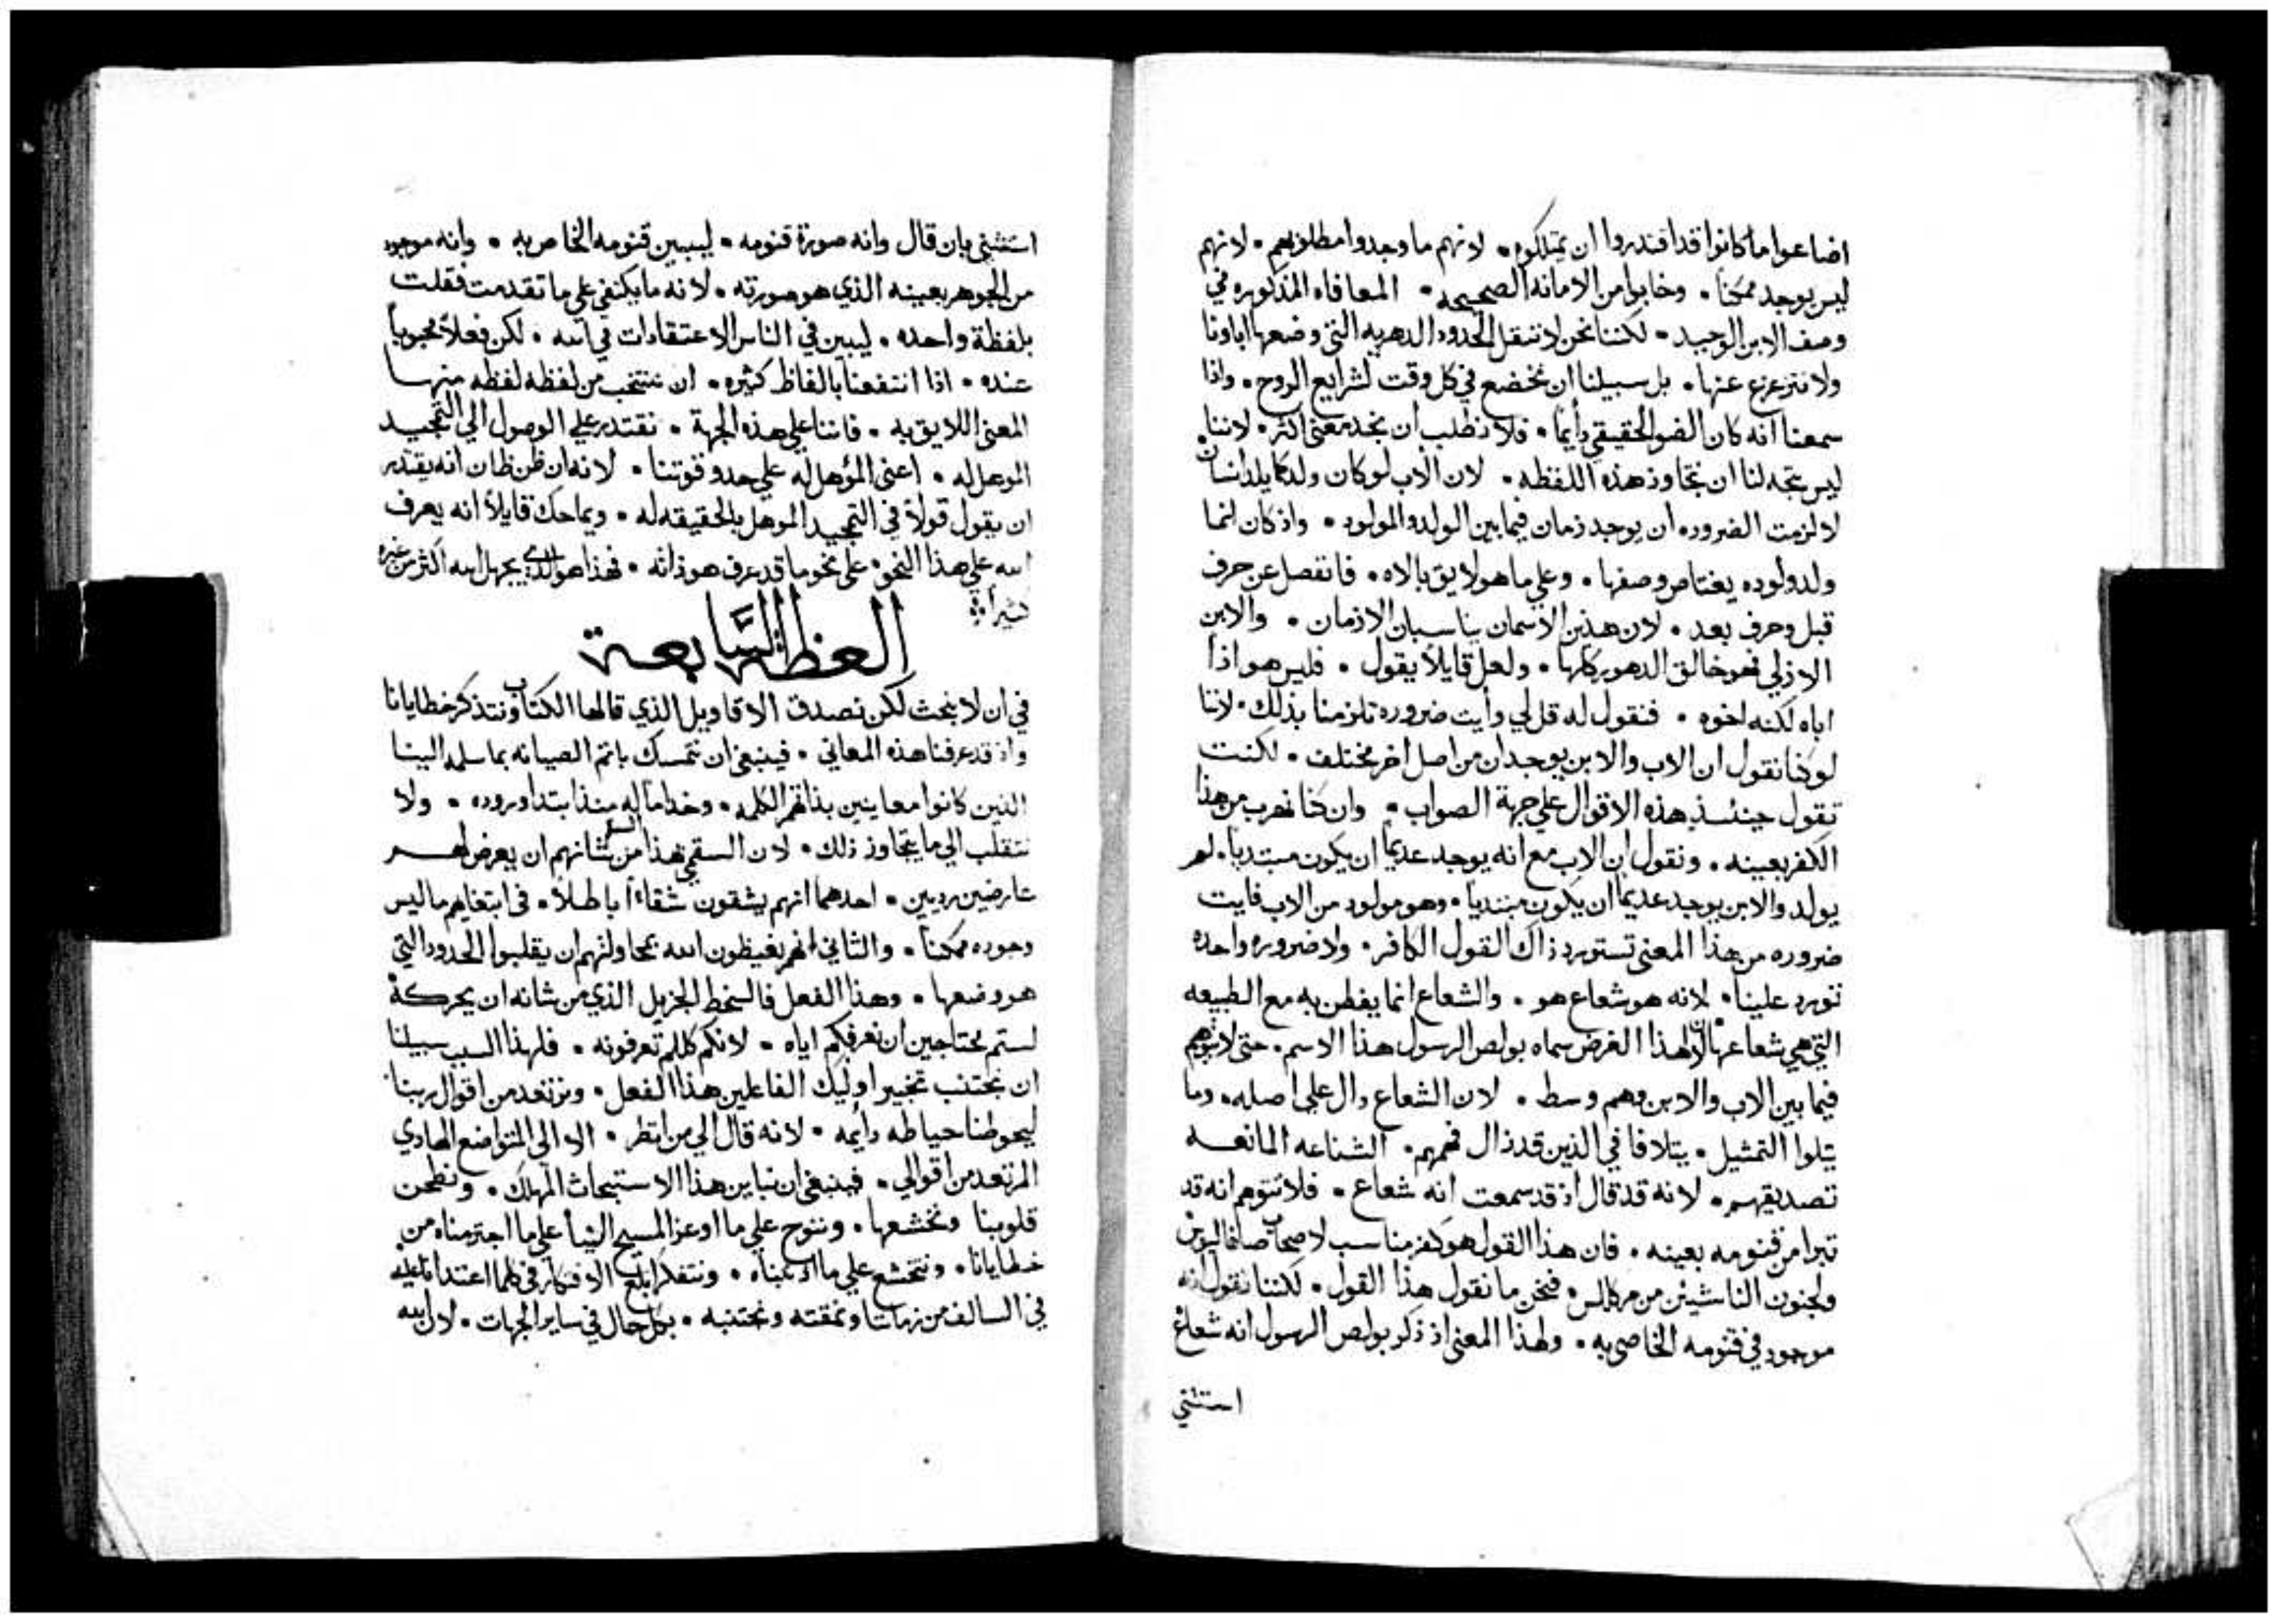 اضاعوا ما كانوا قد اقتدروا ان يمتلكوه • لانهم ما وجدوا مطلوبهم • لانهم
ليس يوجد ممكنا • وخابوا من الامانه الصحيحه • المعافاه المذكوره في
وصف الابن الوحيد • لكننا نحن لا ننقل الحدود الدهريه التي وضعها اباونا
ولا نتزعزع عنها • بل سبيلنا ان نخضع في كل وقت لشرايع الروح • واذا
سمعنا انه كان الضو الحقيقي دأيما • فلا نطلب ان نجد معني اكثر • لاننا
ليس يتجه لنا ان نتجاوز هذه اللفظه • لان الاب لو كان ولد كما يلد انسان
لالزمت الضروره ان يوجد زمان فيما بين الولد والمولود • واذ كان انما
ولد ولوده يعتاص وصفها • وعلي ما هو لايق بالاه • فانفصل عن حرف
قبل وحرف بعد • لان هذين الاسمان يناسبان الازمان • والابن
الازلي فهو خالق الدهور كلها • ولعل قايلاً يقول • فليس هو اذاً
اباه لكنه اخوه • فنقول له قل لي وأيت ضروره تلزمنا بذلك • لاننا
لو كنا نقول ان الاب والابن يوجدان من اصل اخر مختلف • لكنت
تقول حينئذٍ هذه الاقوال علي جهة الصواب • وان كنا نهرب من هذا
الكفر بعينه • ونقول ان الاب مع انه يوجد عديماً ان يكون مبتديا • لم
يولد والابن يوجد عديماً ان يكون مبتدياً • وهو مولود من الاب فايت
ضروره من هذا المعني تستورد ذاك القول الكافر • ولا ضروره واحده
تورد علينا • لانه هو شعاع هو • والشعاع انما يفطن به مع الطبيعه
التي هي شعاعها • لان لهذا الغرض سماه بولص الرسول هذا الاسم • حتي لا تتوهم
فيما بين الاب والابن وهم وسط • لان الشعاع دال علي اصله • وما
يتلوا التمثيل • يتلافا في الذين قد زال فهمهم • الشناعه المانعه
تصديقهم • لانه قد قال اذ قد سمعت انه شعاع • فلا تتوهم انه قد
تبرا من قنومه بعينه • فان هذا القول هو كفر مناسب لاصحاب
ولجنون الناشيين من مركلس • فنحن ما نقول هذا القول • لكننا نقول انه
موجود في قنومه الخاصي به • ولهذا المعني اذ ذكر بولص الرسول انه شعاع
استثني
استثني بان قال وانه صورة قنومه • ليبين قنومه الخاص به • وانه موجود
من الجوهر بعينه الذي هو صورته • لانه ما يكتفي علي ما تقدمت فقلت
بلفظة واحده • ليبين في الناس الاعتقادات في الله • لكن فعلاً محبوباً
عنده • اذا انتفعنا بالفاظ كثيره • ان ننتخب من لفظه لفظه منها
المعني اللايق به • فاننا علي هذه الجهة • نقتدر علي الوصول الي التمجيد
الموهل له • اعني المؤهل له علي حدو قوتنا • لانه ان ظن ظان انه يقتدر
ان يقول قولاً في التمجيد الموهل بالحقيقه له • ويماحك قايلاً انه يعرف
الله علي هذا النحو • علي نحو ما قد عرف هو ذاته • فهذا هو الذي يجهل الله اكثر من غيره
كثيراً
العظة السَّابعة
في ان لا نبحث لكن نصدق الاقاويل الذي قالها الكتاب ونتذكر خطايانا
واذ قد عرفنا هذه المعاني • فينبغي ان نتمسك باتم الصيانه بما سلمه الينا
الذين كانوا معاينين بذاتهم الكلمه • وخداماً له منذ ابتدا وروده • ولا
نتقلب الي ما يتجاوز ذلك • لان السقمي هذا من شانهم ان يعرض لهم
عارضين رديين • احدهما انهم يشقون شقاءاً باطلاً • في ابتغايهم ما ليس
وجوده ممكناً • والثاني انهم يغيظون الله بمحاولتهم ان يقلبوا الحدود التي
هو وضعها • وهذا الفعل فالسخط الجزيل الذي من شانه ان يحركهُ
لستم محتاجين ان نعرفكم اياه • لانكم كلكم تعرفونه • فلهذا السبب سبيلنا
ان نجتنب تخيير اوليك الفاعلين هذا الفعل • ونرتعد من اقوال ربنا
ليحوطنا حياطه دأيمه • لانه قال الي من انظر • الا الي المتواضع الهادي
المرتعد من اقوالي • فينبغي ان نباين هذا الاستبحاث المهلك • ونطحن
قلوبنا ونخشعها • وننوح علي ما اوعز المسيح الينا علي ما اجترمناه من
خطايانا • ونتخشع علي ما اذنبناه • ونتفكر ابلغ الافتكار في كلما اعتدانا عليه
في السالف من زماننا ونمقته ونجتنبه • بكل حال في ساير الجهات • لان الله